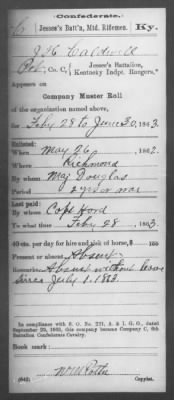 (Confederate.)
C Jessee's Batt'n, Mtd. Riflemen. Ky.
J H Caldwell
Pvt, Co. C, Jessee's Battalion, Kentucky Indpt. Rangers.*
Appears on
Company Muster Roll
of the organization named above,
for Feby 28 to June 30, 1863.
Enlisted:
When May 26, 1862.
Where Richmond
By whom Maj Douglas
Period 2 yrs or war
Last paid:
By whom Capt Hord
To what time Feby 28, 1863.
40 cts. per day for hire and risk of horse, $ 100
Present or absent Absent
Remarks: Absent without leave
since July 1. 1863.
* In compliance with S. O. No. 221, A. & I. G. O., dated
September 1863, this company became Company C, 6th
Battalion Confederate Cavalry.
Book mark:
(642) Copyist.